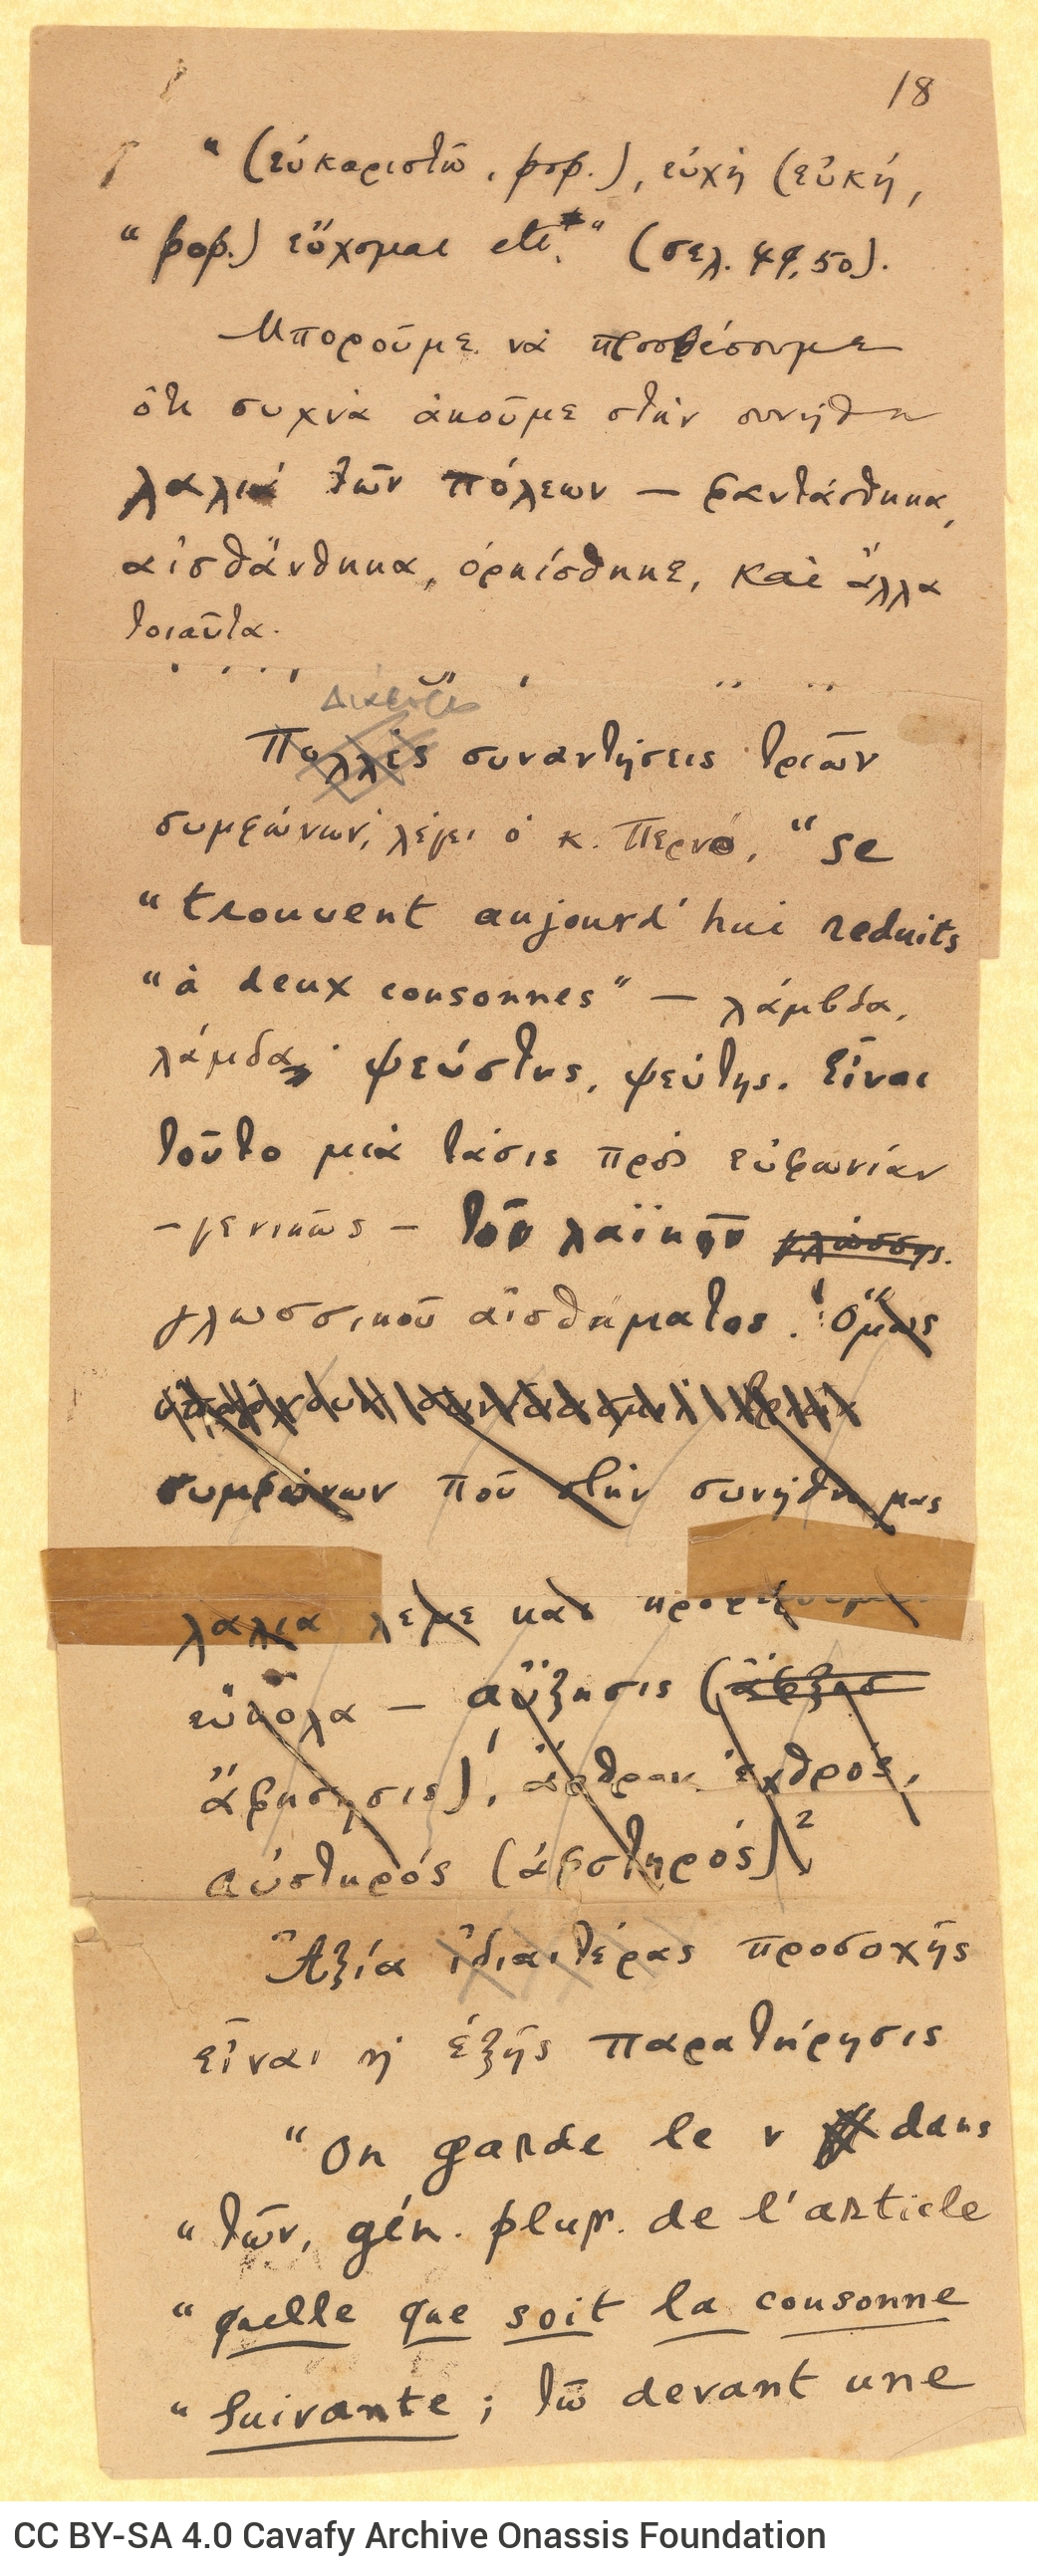 18
“ (εὐκαριστῶ, pop.), εὐχή (εὐκή,
“ pop.) εὔχομαι etc.* ” (σελ. 49, 50).
Μποροῦμε νὰ προσθέσουμε
ὅτι συχνὰ ἀκοῦμε στὴν συνήθη
λαλιά τῶν πόλεων — φαντάσθηκα,
αἰσθάνθηκα, ὁρκίσθηκε, καὶ ἄλλα
τοιαῦτα.
Πολλὲς συναντήσεις τριῶν
συμφώνων, λέγει ὁ κ. Περνό, “ se
“ trouvent aujourd'hui reduits
“ à deux consonnes ” — λάμβδα,
λάμδα· ψεύστης, ψεύτης. Εἶναι
τοῦτο μιὰ τάσις πρὸς εὐφωνίαν
— γενικῶς — τοῦ λαϊκοῦ γλώσσης.
γλωσσικοῦ αἰσθήματος. Ὅμως
συμφώνων ποὺ στὴν συνήθη μας
λαλιὰ λέμε καὶ προφέρουμε
εὔκολα — αὔξησις (
ἄφξησις), ἄρθρον, ἐχθρός,
αὐστηρός (ἀφστηρός) 2
Ἀξία ἰδιαιτέρας προσοχῆς
εἶναι ἡ ἑξῆς παρατήρησις
“ On garde le ν dans
“ τῶν, gén. plur. de l'article
“ quelle que soit la consonne
“ suivante ; τῶ devant une
CC BY-SA 4.0 Cavafy Archive Onassis Foundation